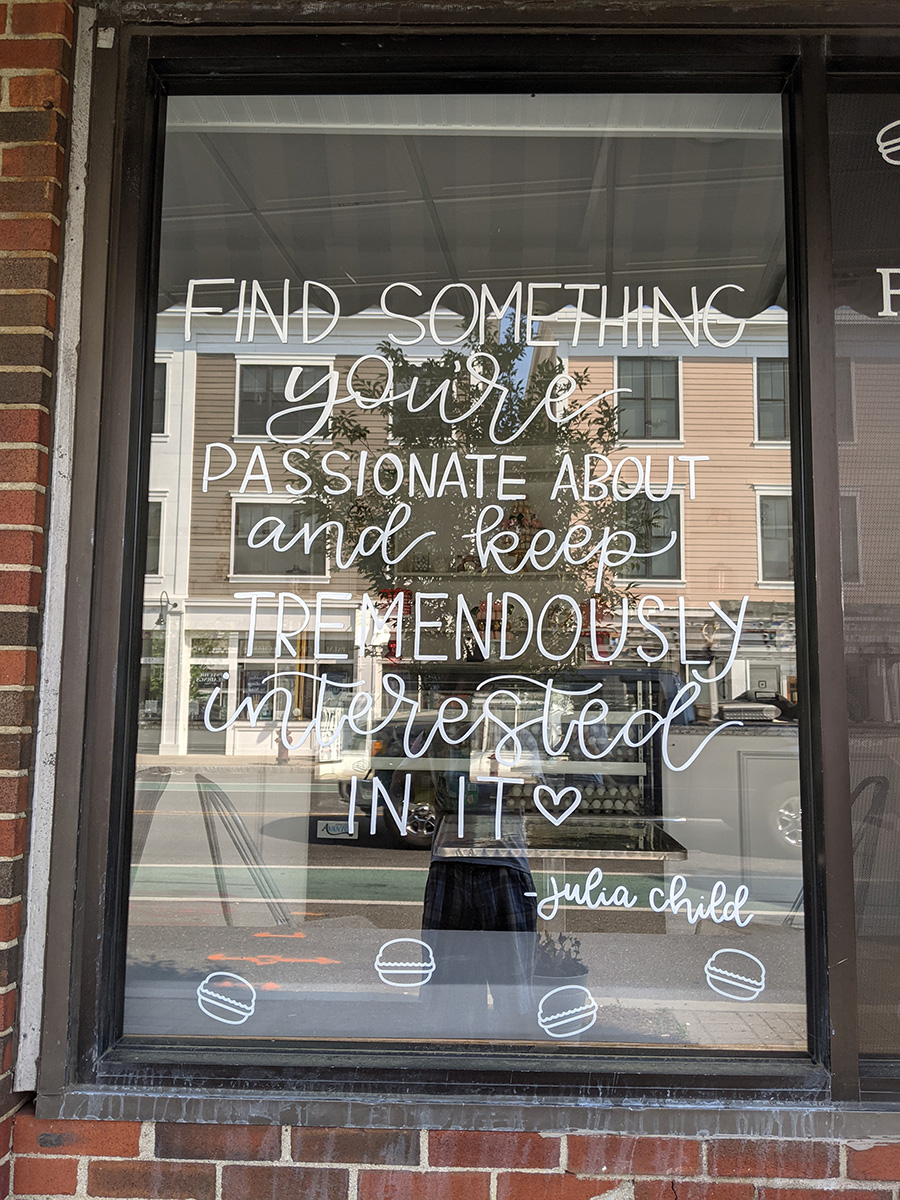 FIND SOMETHING
you're
PASSIONATE ABOUT
and keep
TREMENDOUSLY
interested
IN IT
-Julia child